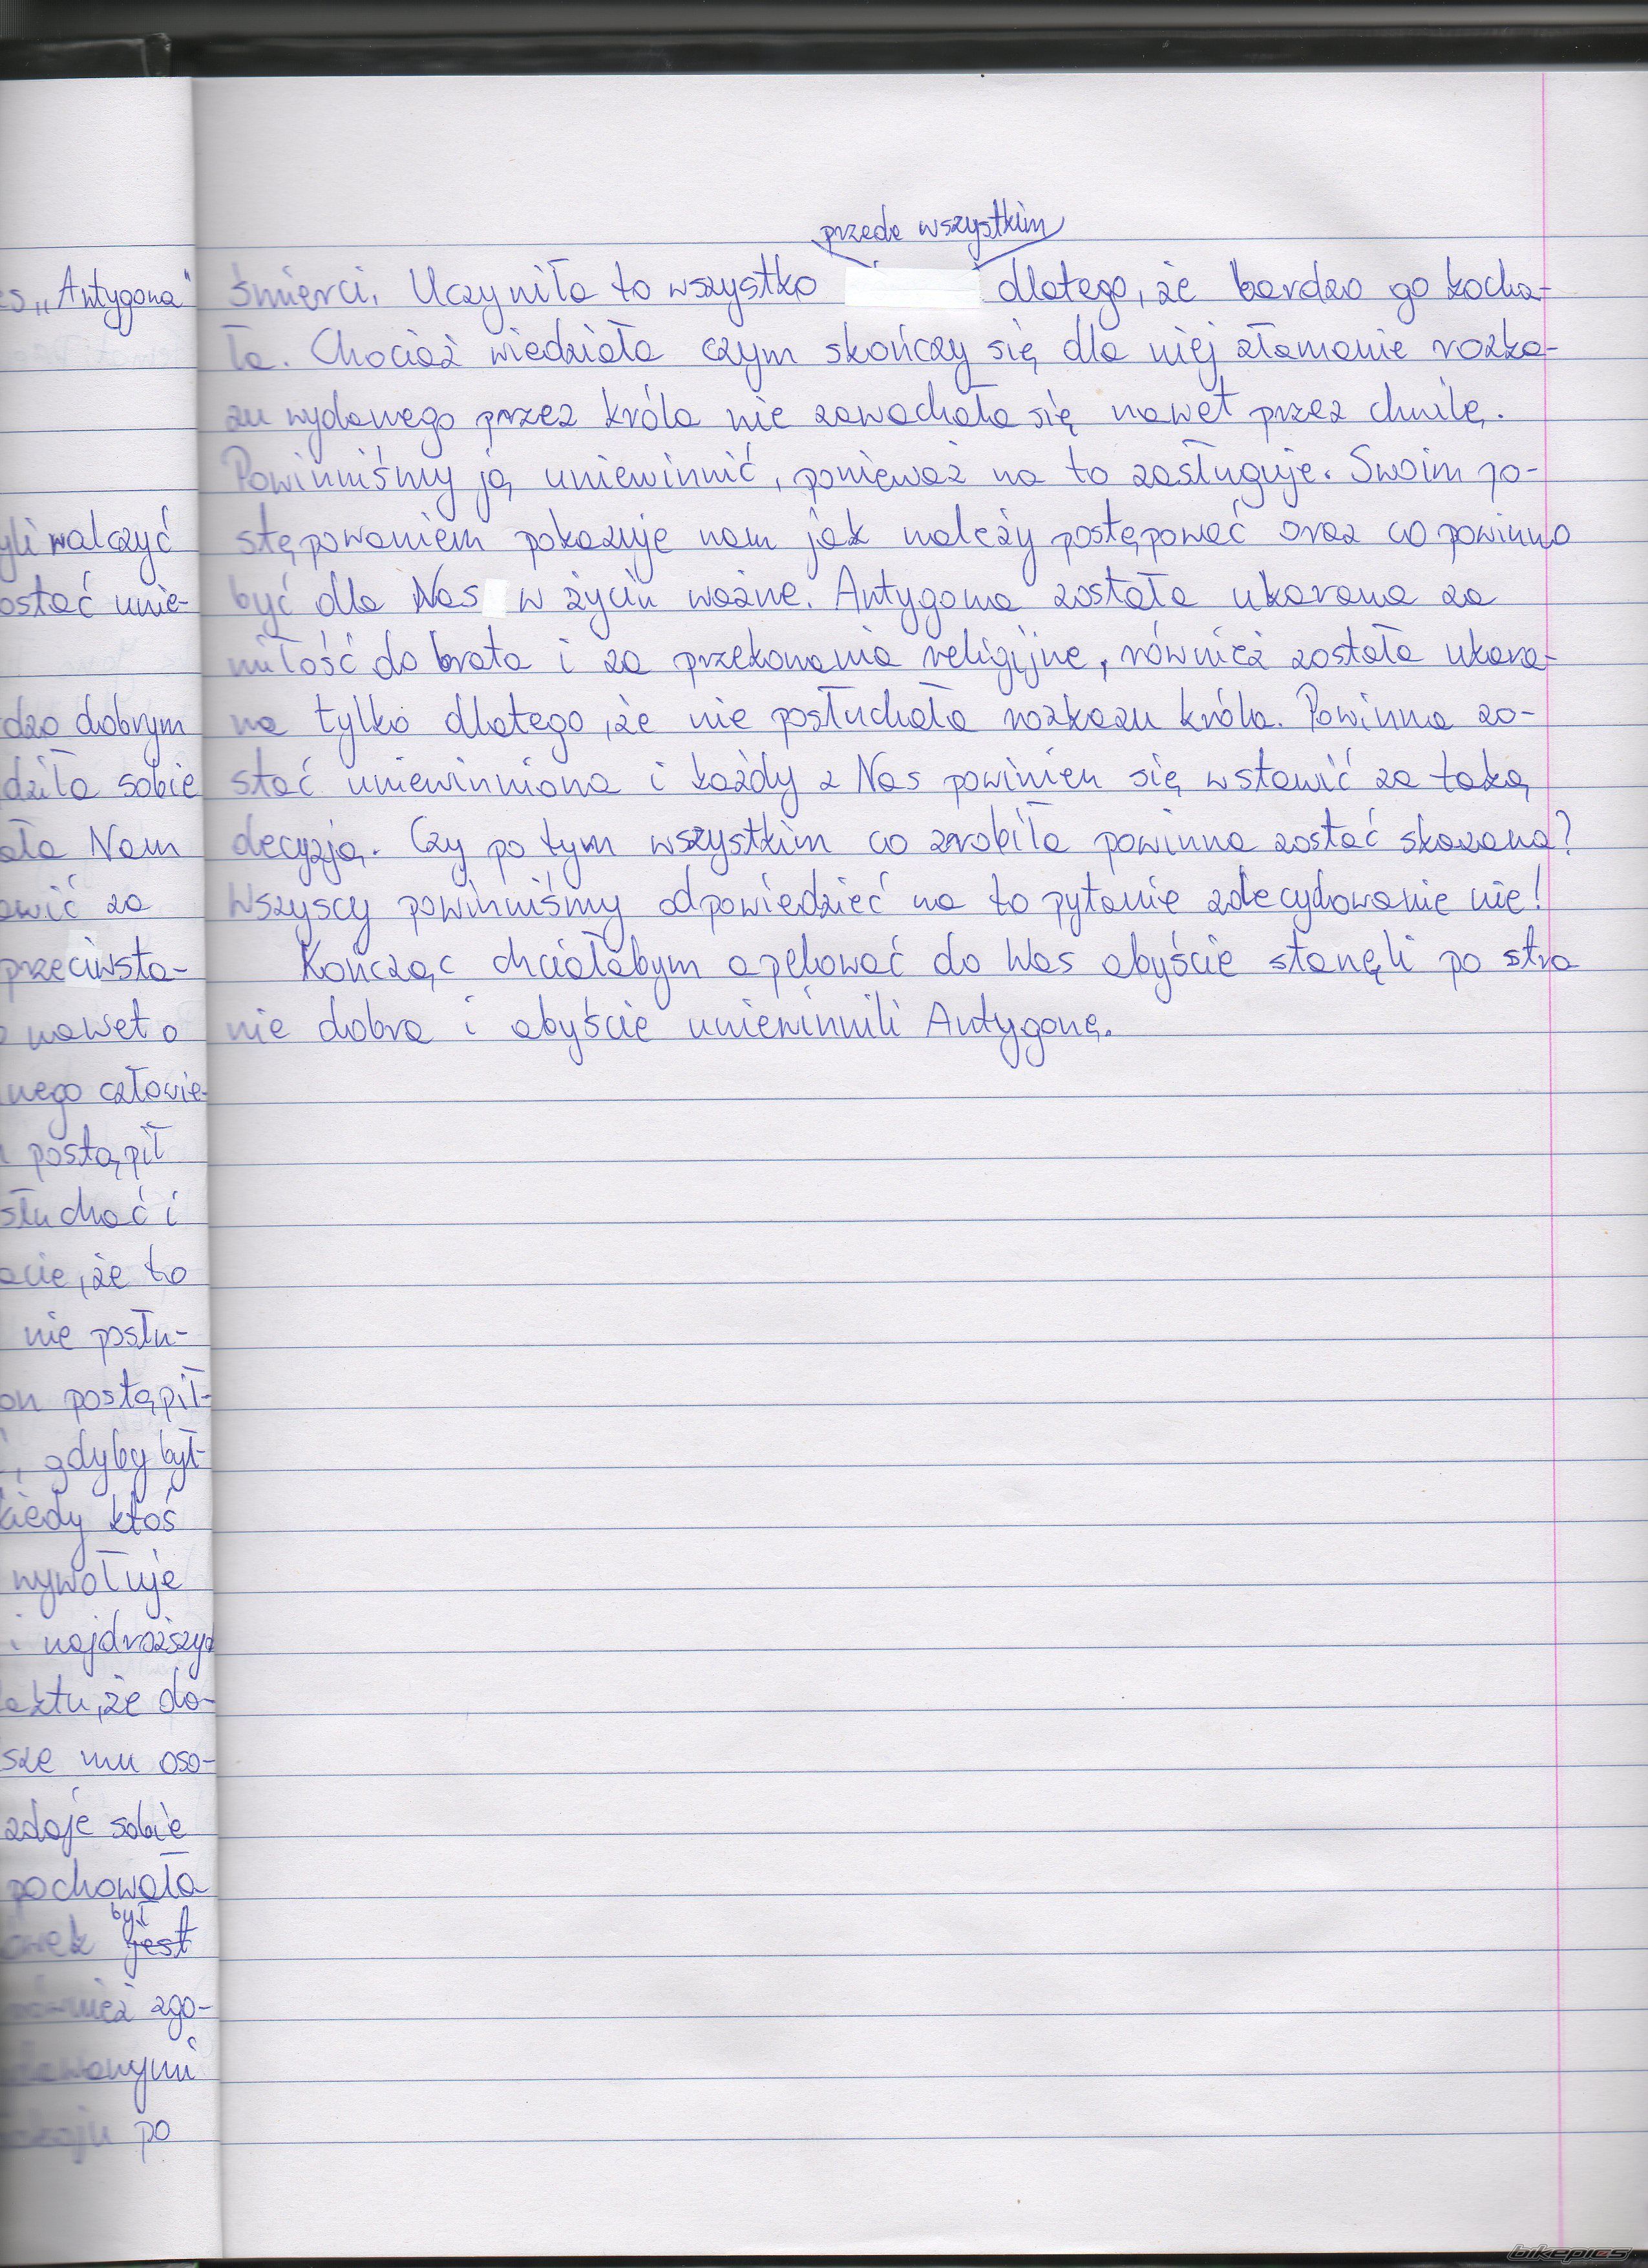 s „Antygona"
yli walczyć
ostać unie-
dzo dobrym
dziła sobie
ała Nam
awić za
przeciwsta-
nawet o
nego człowie-
postąpił
słuchać i
acie, że to
nie posłu-
on postąpił-
, gdyby był-
kiedy ktoś
wywołuje
i najdroższych
aktu, że do-
sze mu oso-
zdaje sobie
pochowała
był
owek jest
również zgo-
wanymi
po
przede wszystkim
śmierci. Uczyniła to wszystko dlatego, że bardzo go kocha-
ła. Chociaż wiedziała czym skończy się dla niej złamanie rozka-
zu wydanego przez króla nie zawachała się nawet przez chwilę.
Powinniśmy ją uniewinnić, ponieważ na to zasługuje. Swoim po-
stępowaniem pokazuje nam jak należy postępować oraz co powinno
być dla Nas w życiu ważne. Antygona została ukarana za
miłość do brata i za przekonania religijne, również została ukara-
na tylko dlatego, że nie posłuchała rozkazu króla. Powinna zo-
stać uniewinniona i każdy z Nas powinien się wstawić za taką
decyzją. Czy po tym wszystkim co zrobiła powinna zostać skazana?
Wszyscy powinniśmy odpowiedzieć na to pytanie zdecydowanie nie!
Kończąc chciałabym apelować do Was abyście stanęli po stro
nie dobra i abyście uniewinnili Antygonę.
bikepics